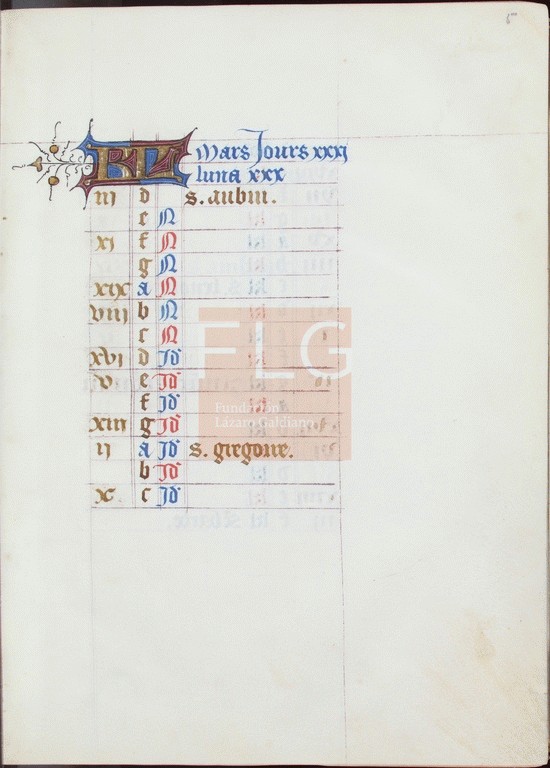 KL Mars Jours xxxj
luna xxx
iij d s. aubin.
e N
xj f N
g N
xix a N
viij b N
c N
xvj d Jd
v e Jd
f Jd
xiij g Jd
ij a Jd s. gregoire.
b Jd
x. c Jd
FLG
Fundación
Lázaro Galdiano